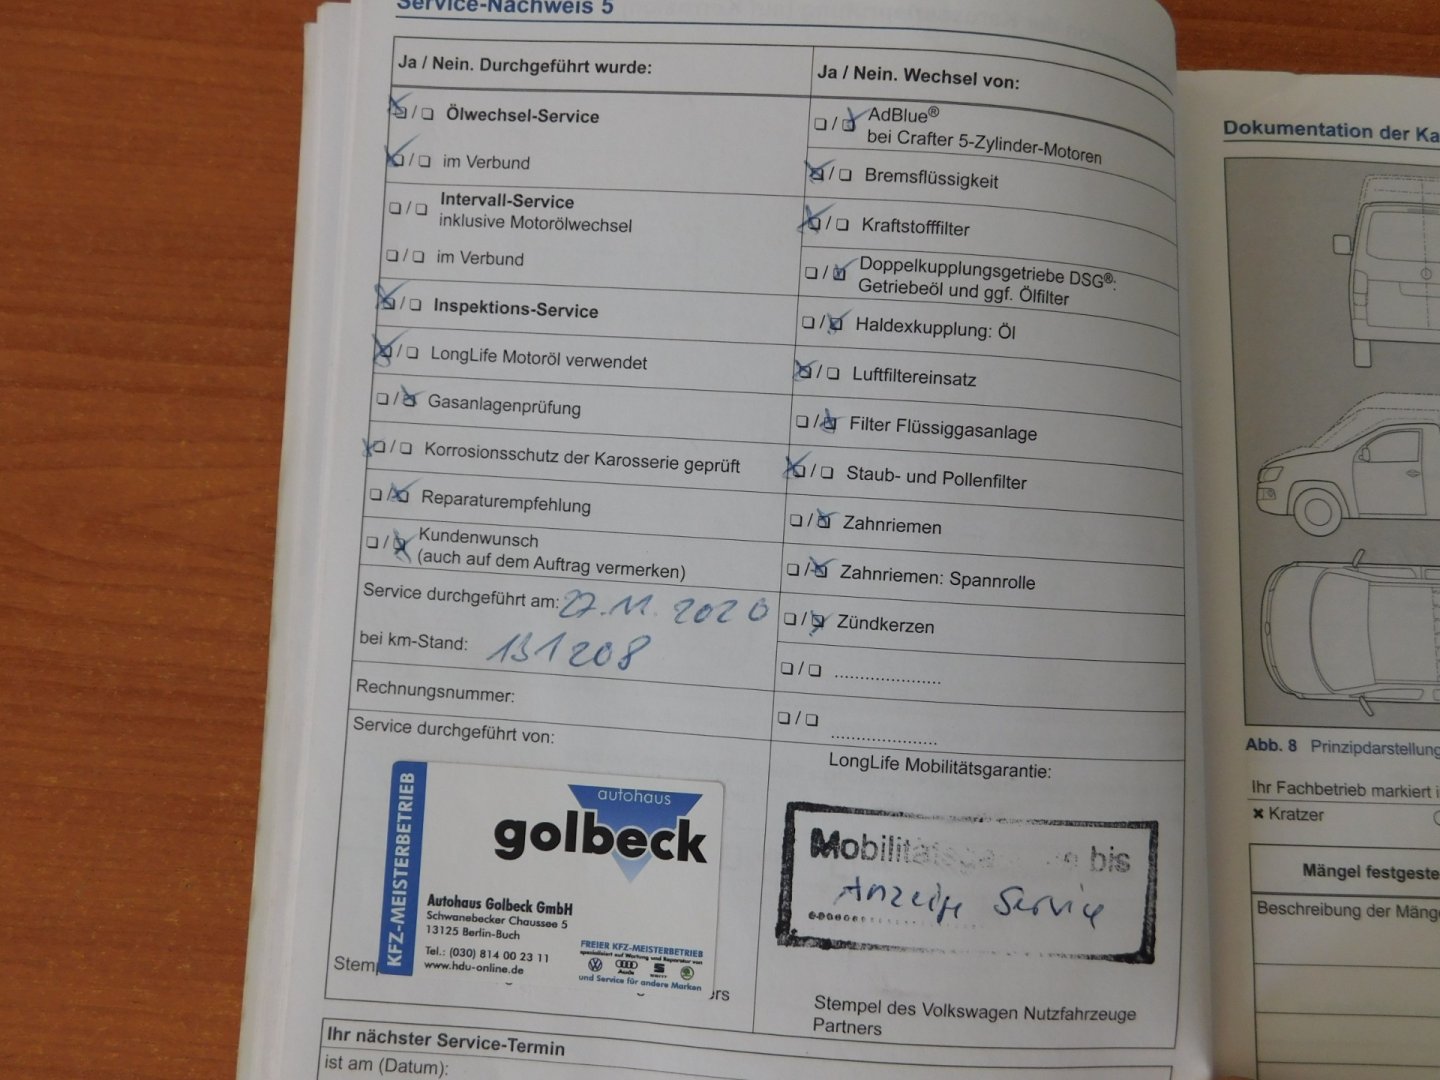 Service-Nachweis 5
Ja / Nein. Durchgeführt wurde:
Ölwechsel-Service
im Verbund
Intervall-Service
inklusive Motorölwechsel
im Verbund
Inspektions-Service
LongLife Motoröl verwendet
Gasanlagenprüfung
Korrosionsschutz der Karosserie geprüft
Reparaturempfehlung
Kundenwunsch
(auch auf dem Auftrag vermerken)
Service durchgeführt am: 27.11.2020
bei km-Stand: 131208
Rechnungsnummer:
Service durchgeführt von:
KFZ-MEISTERBETRIEB
autohaus
golbeck
Autohaus Golbeck GmbH
Schwanebecker Chaussee 5
13125 Berlin-Buch
Tel.: (030) 814 00 23 11
www.hdu-online.de
FREIER KFZ-MEISTERBETRIEB
spezialisiert auf Wartung und Reparatur von
Audi
SEAT
und Service für andere Marken
Ja / Nein. Wechsel von:
AdBlue®
bei Crafter 5-Zylinder-Motoren
Bremsflüssigkeit
Kraftstofffilter
Doppelkupplungsgetriebe DSG®:
Getriebeöl und ggf. Ölfilter
Haldexkupplung: Öl
Luftfiltereinsatz
Filter Flüssiggasanlage
Staub- und Pollenfilter
Zahnriemen
Zahnriemen: Spannrolle
Zündkerzen
LongLife Mobilitätsgarantie:
Mobilitätsgarantie bis
Anzeige Service
Stempel des Volkswagen Nutzfahrzeuge
Partners
Ihr nächster Service-Termin
ist am (Datum):
Dokumentation der Ka
Abb. 8 Prinzipdarstellung
Ihr Fachbetrieb markiert i
Kratzer
Mängel festgeste
Beschreibung der Mäng